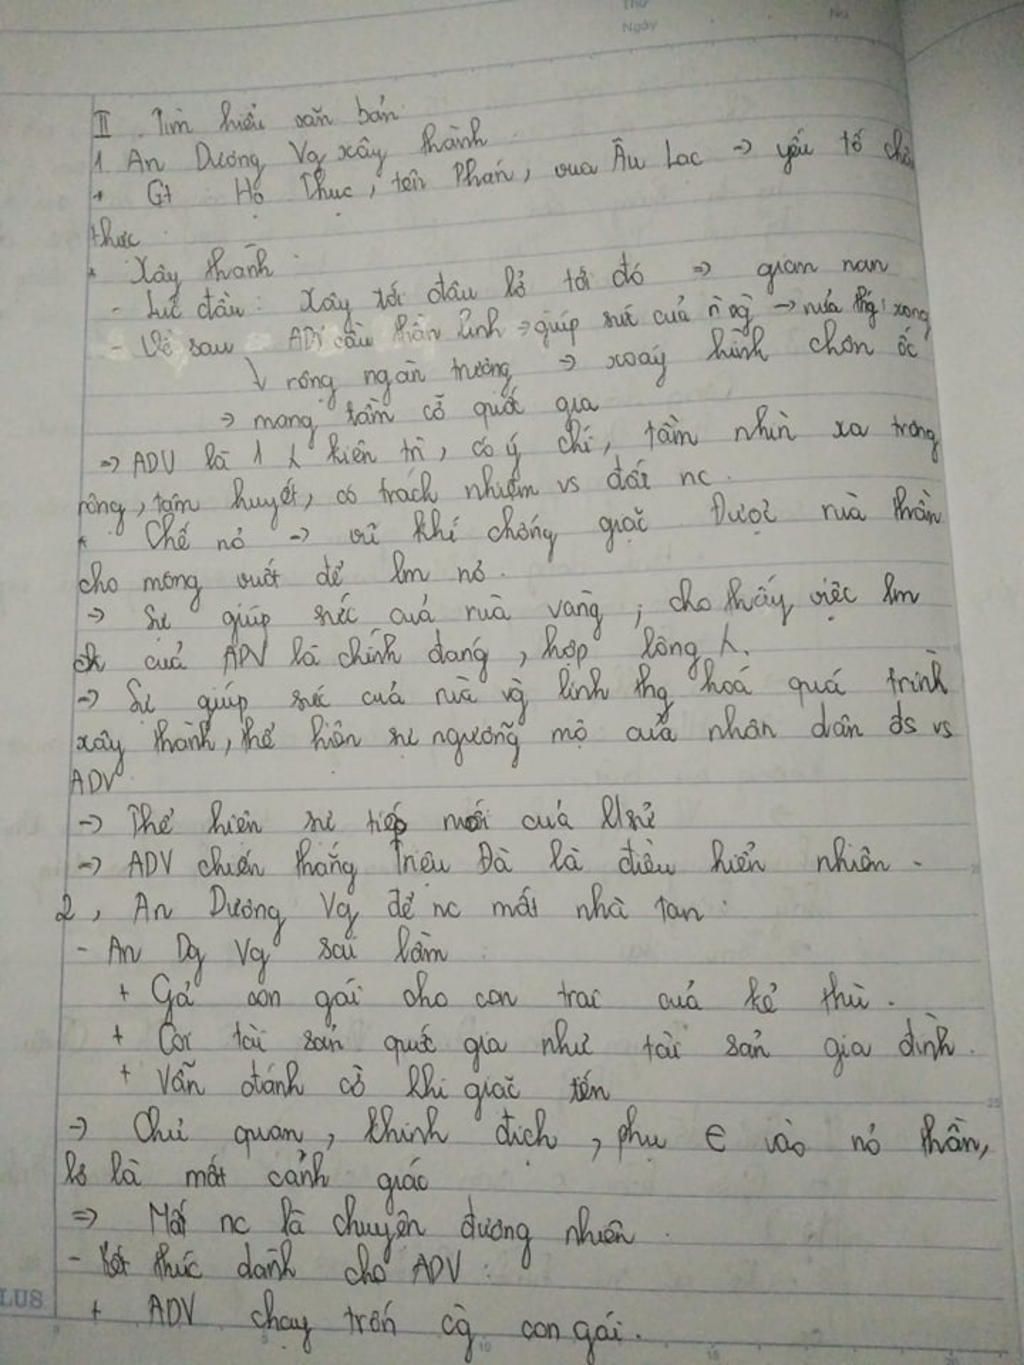 Thứ
Ngày
No
II. Tìm hiểu văn bản
1 An Dương Vg xây thành
* Gt Họ Thục, tên Phán, vua Âu Lạc => yếu tố
thực
* Xây thành
- Lúc đầu: Xây tới đâu lở tới đó => gian nan
- Về sau ADV cầu thần linh => giúp sức của rùa vàg -> nửa thg: xong
↓ rộng ngàn trượng => xoáy hình chôn ốc
=> mang tầm cỡ quốc gia
=> ADV là 1 kiên trì, có ý chí, tầm nhìn xa trông
rộng, tâm huyết, có trách nhiệm vs đất nc.
* Chế nỏ -> vũ khí chống giặc Được rùa thần
cho móng vuốt để lm nỏ.
=> Sự giúp sức của rùa vàng, cho thấy việc lm
của ADV là chính đáng, hợp lòng
=> Sự giúp sức của rùa vg linh thg hoá quá trình
xây thành, thể hiện sự ngưỡng mộ của nhân dân đs vs
ADV
=> Thể hiện sự tiếp nối của lsử
=> ADV chiến thắng Triệu Đà là điều hiển nhiên.
2, An Dương Vg để nc mất nhà tan.
- An Dg Vg sai lầm
+ Gả con gái cho con trai của kẻ thù.
+ Coi tài sản quốc gia như tài sản gia đình.
+ Vẫn đánh cờ khi giặc đến
=> Chủ quan, khinh địch, phụ ∈ vào nỏ thần,
lơ là mất cảnh giác
=> Mất nc là chuyện đương nhiên.
- Kết thúc dành cho ADV:
+ ADV chạy trốn cg con gái.
LUS